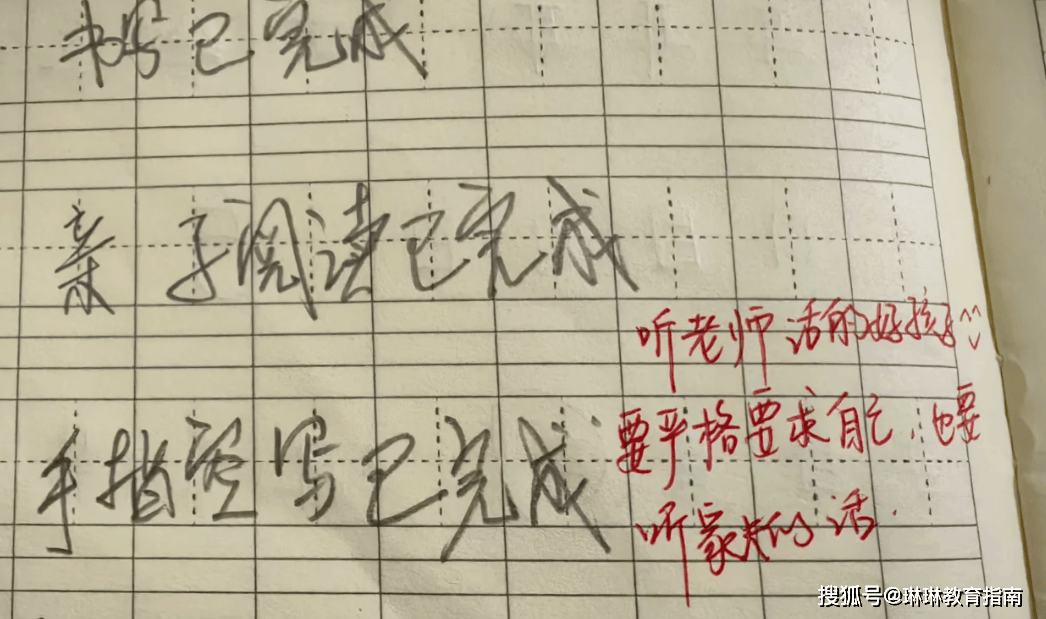 书写已完成
亲子阅读已完成
听老师话的好孩子
手指空写已完成
要严格要求自己，也要
听家长的话.
搜狐号@琳琳教育指南